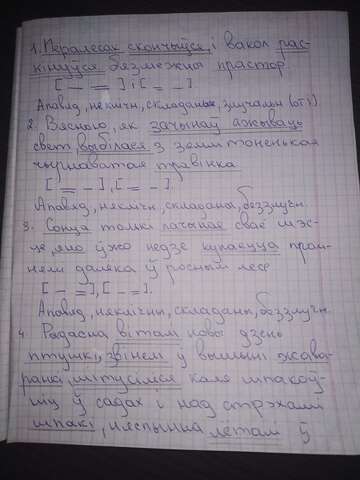 1. Пералесак скончыўся, і вакол рас-
кінуўся бязмежны прастор
[ — = ] і [ = — ]
Апавяд, неклічн, складаны, злучальн (от і)
2. Вясною, як зачынаў ажываць
свет выбілася з зямлі тоненькая
чырванатая травінка
[ = — ], [ = — ]
Апавяд, неклічн, складаны, беззлучн.
3. Сонца толькі пачынае сваё шэс-
це, яно ўжо недзе купаецца прам-
нем далёка ў росным лесе
[ — = ], [ — = ].
Апавяд, неклічны, складаны, беззлучн.
4. Радасна вітам новы дзень
птушкі, звінем ў вышыні жава-
ранкі, мітусімся каля шпакоў-
ні ў садах і над стрэхамі
шпакі, няспынна летам ў